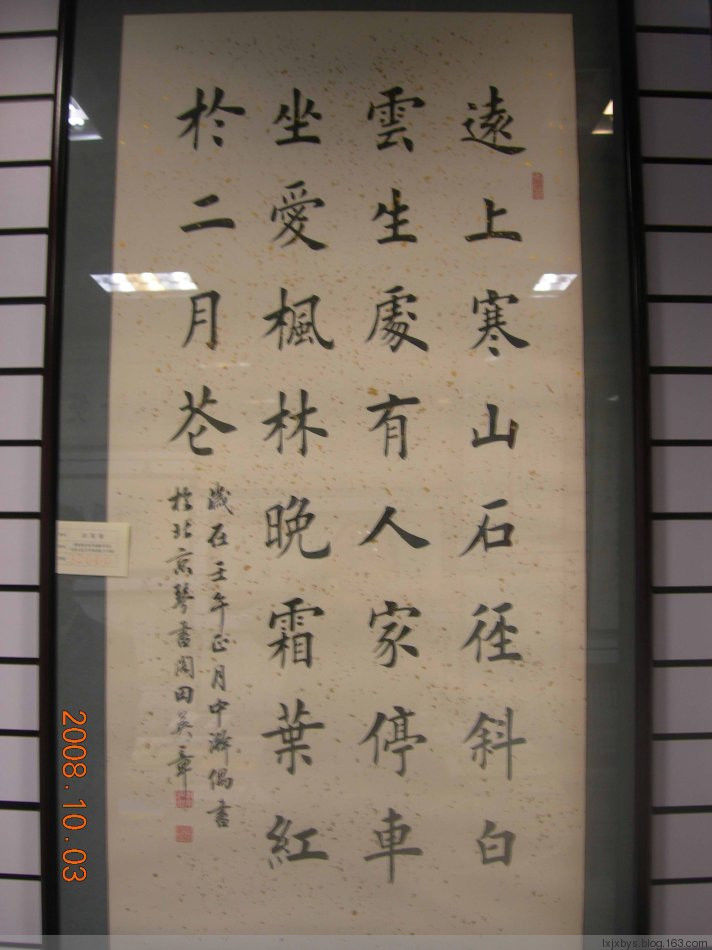 遠上寒山石徑斜白
雲生處有人家停車
坐愛楓林晚霜葉紅
於二月花
歲在壬午正月中澣偶書
於北京琴書閣田英章
2008.10.03
lxjxbys.blog.163.com